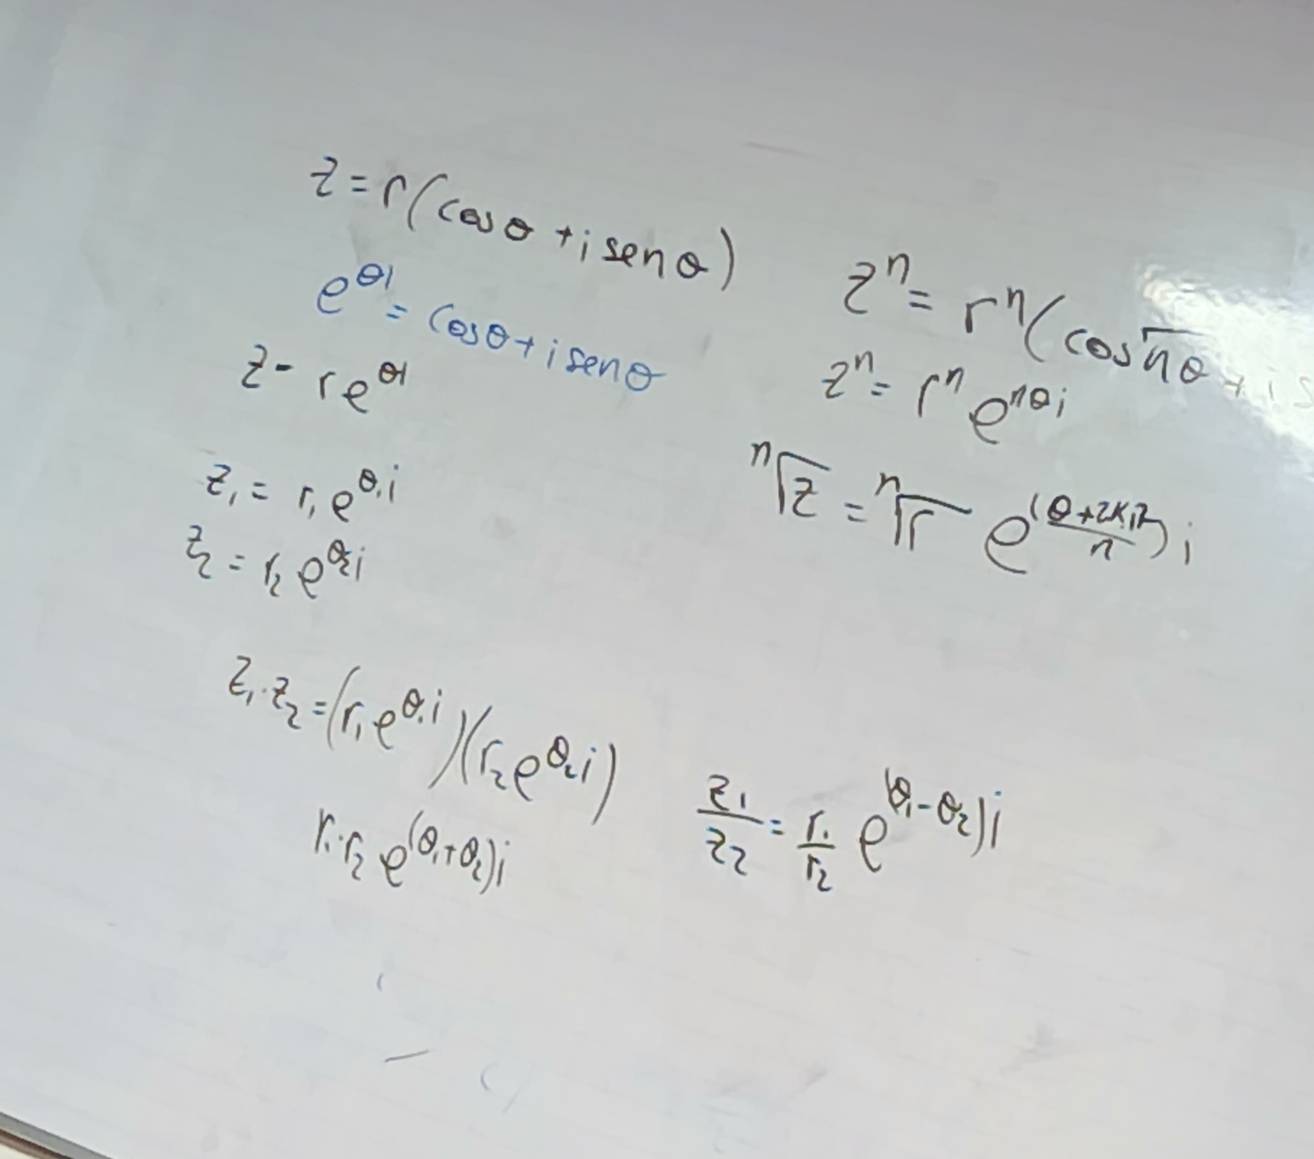 z = r(cos θ + i sen θ)
e^{θi} = cos θ + i sen θ
z = r e^{θi}
z₁ = r₁ e^{θ₁i}
z₂ = r₂ e^{θ₂i}
z₁·z₂ = (r₁ e^{θ₁i})(r₂ e^{θ₂i})
r₁·r₂ e^{(θ₁+θ₂)i}
zⁿ = rⁿ(cos nθ + i s
zⁿ = rⁿ e^{nθi}
ⁿ√z = ⁿ√r e^{((θ+2kπ)/n)i}
z₁/z₂ = r₁/r₂ e^{(θ₁-θ₂)i}